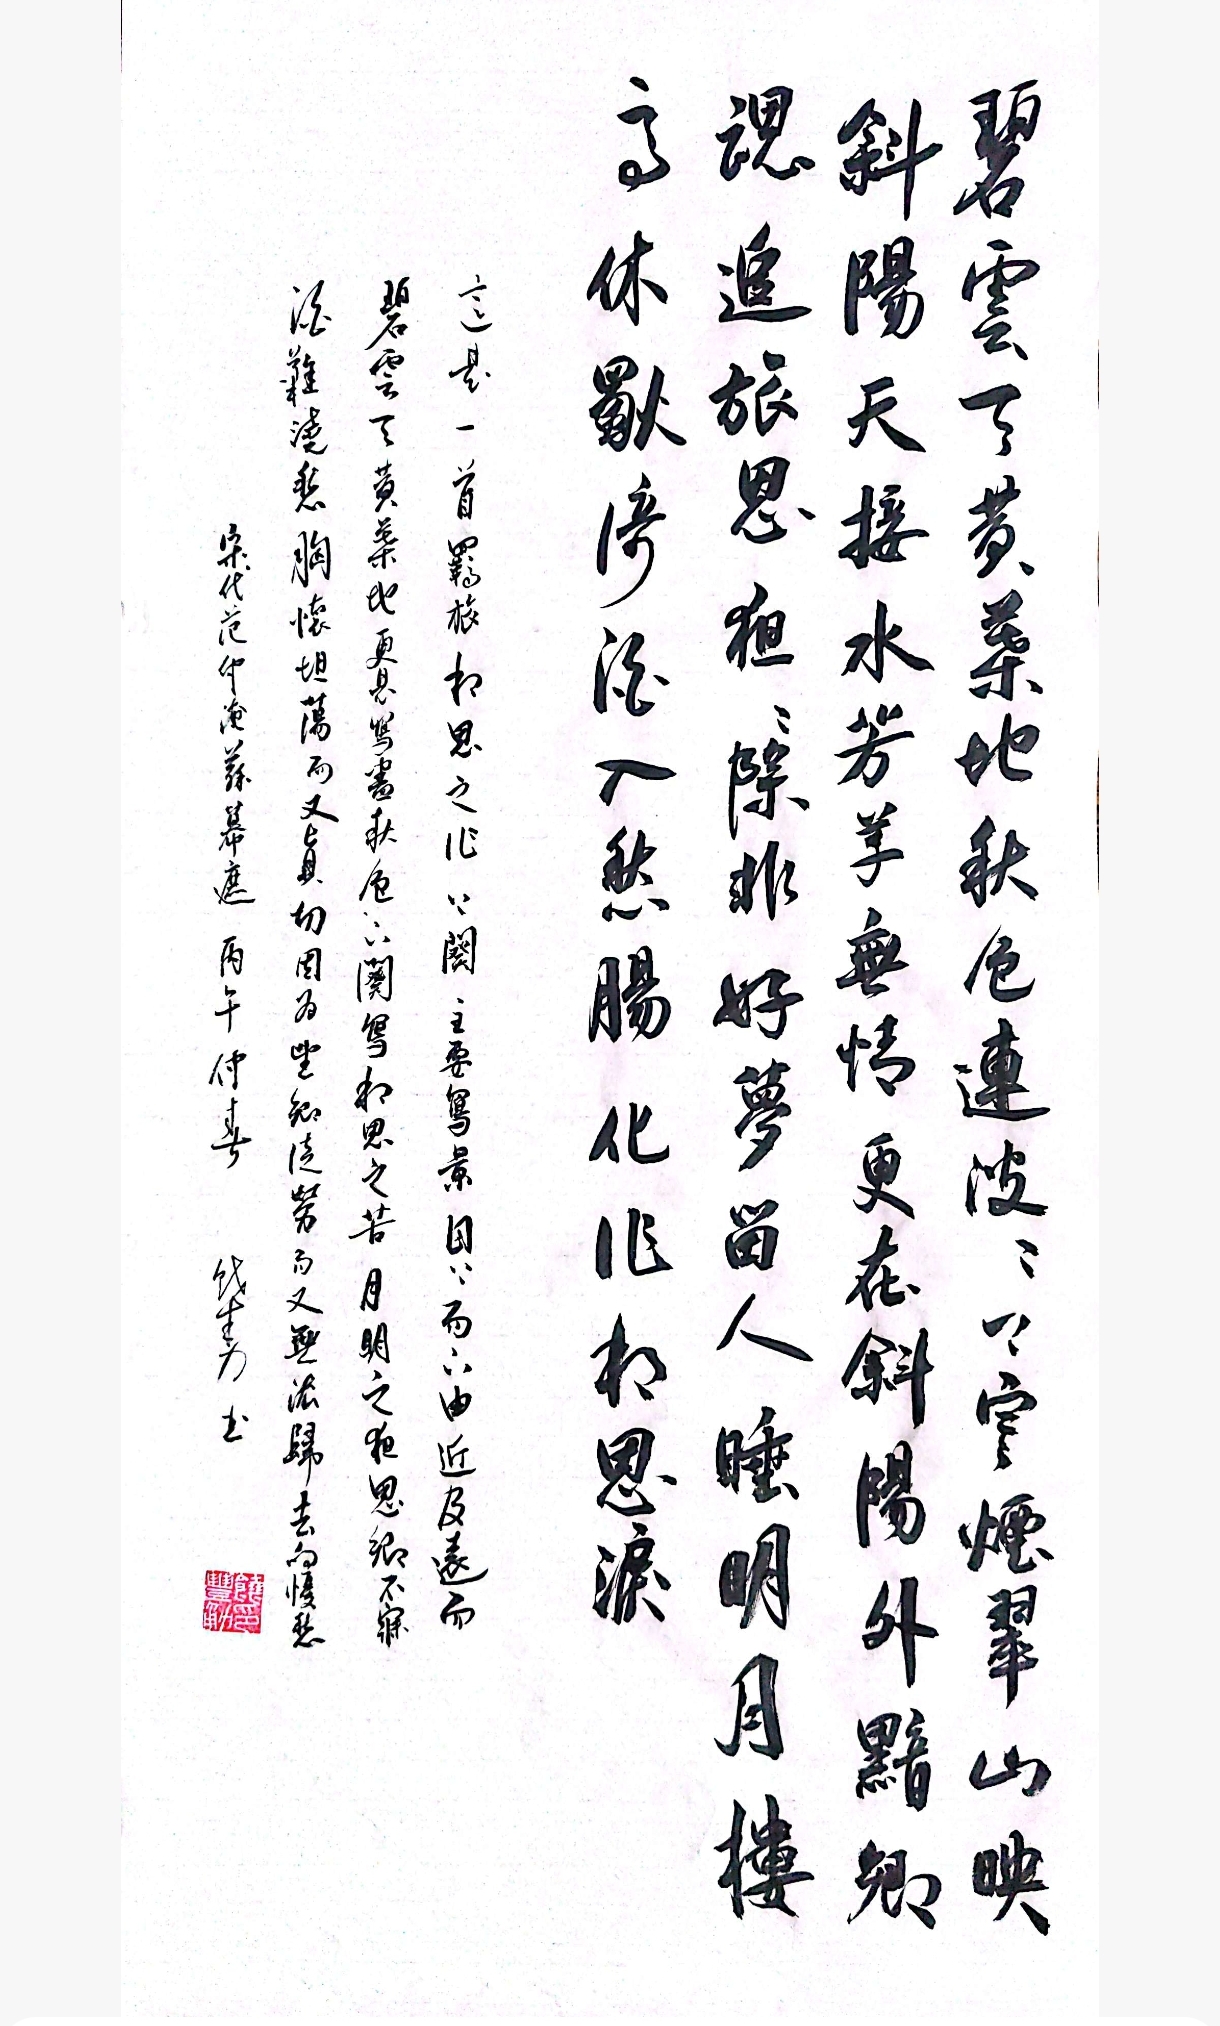 碧雲天黃葉地秋色連波〻上寒煙翠山映
斜陽天接水芳草無情更在斜陽外黯鄉
魂追旅思夜〻除非好夢留人睡明月樓
高休獨倚酒入愁腸化作相思淚
這是一首羈旅相思之作上闋主要寫景目上而下由近及遠而
碧雲天黃葉地更是寫盡秋色〻下闋寫相思之苦月明之夜思鄉不寐
酒難澆愁胸懷坦蕩而又真切因為望鄉徒勞而又無法歸去的憂愁
宋代范仲淹蘇幕遮丙午仲春 書